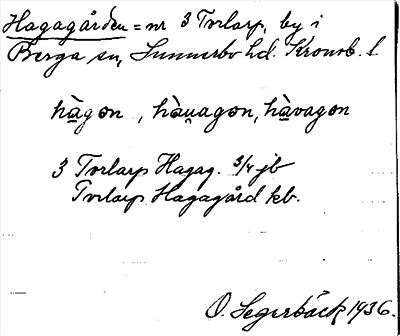 Hagagården = nr 3 Torlarp, by i
Berga sn, Sunnerbo hd. Kronob. l.
hàgon, hàu̯agon, hàvagon
3 Torlarp Hagag. 3/4 jb
Torlarp Hagagård kb.
O. Segerbäck 1936.